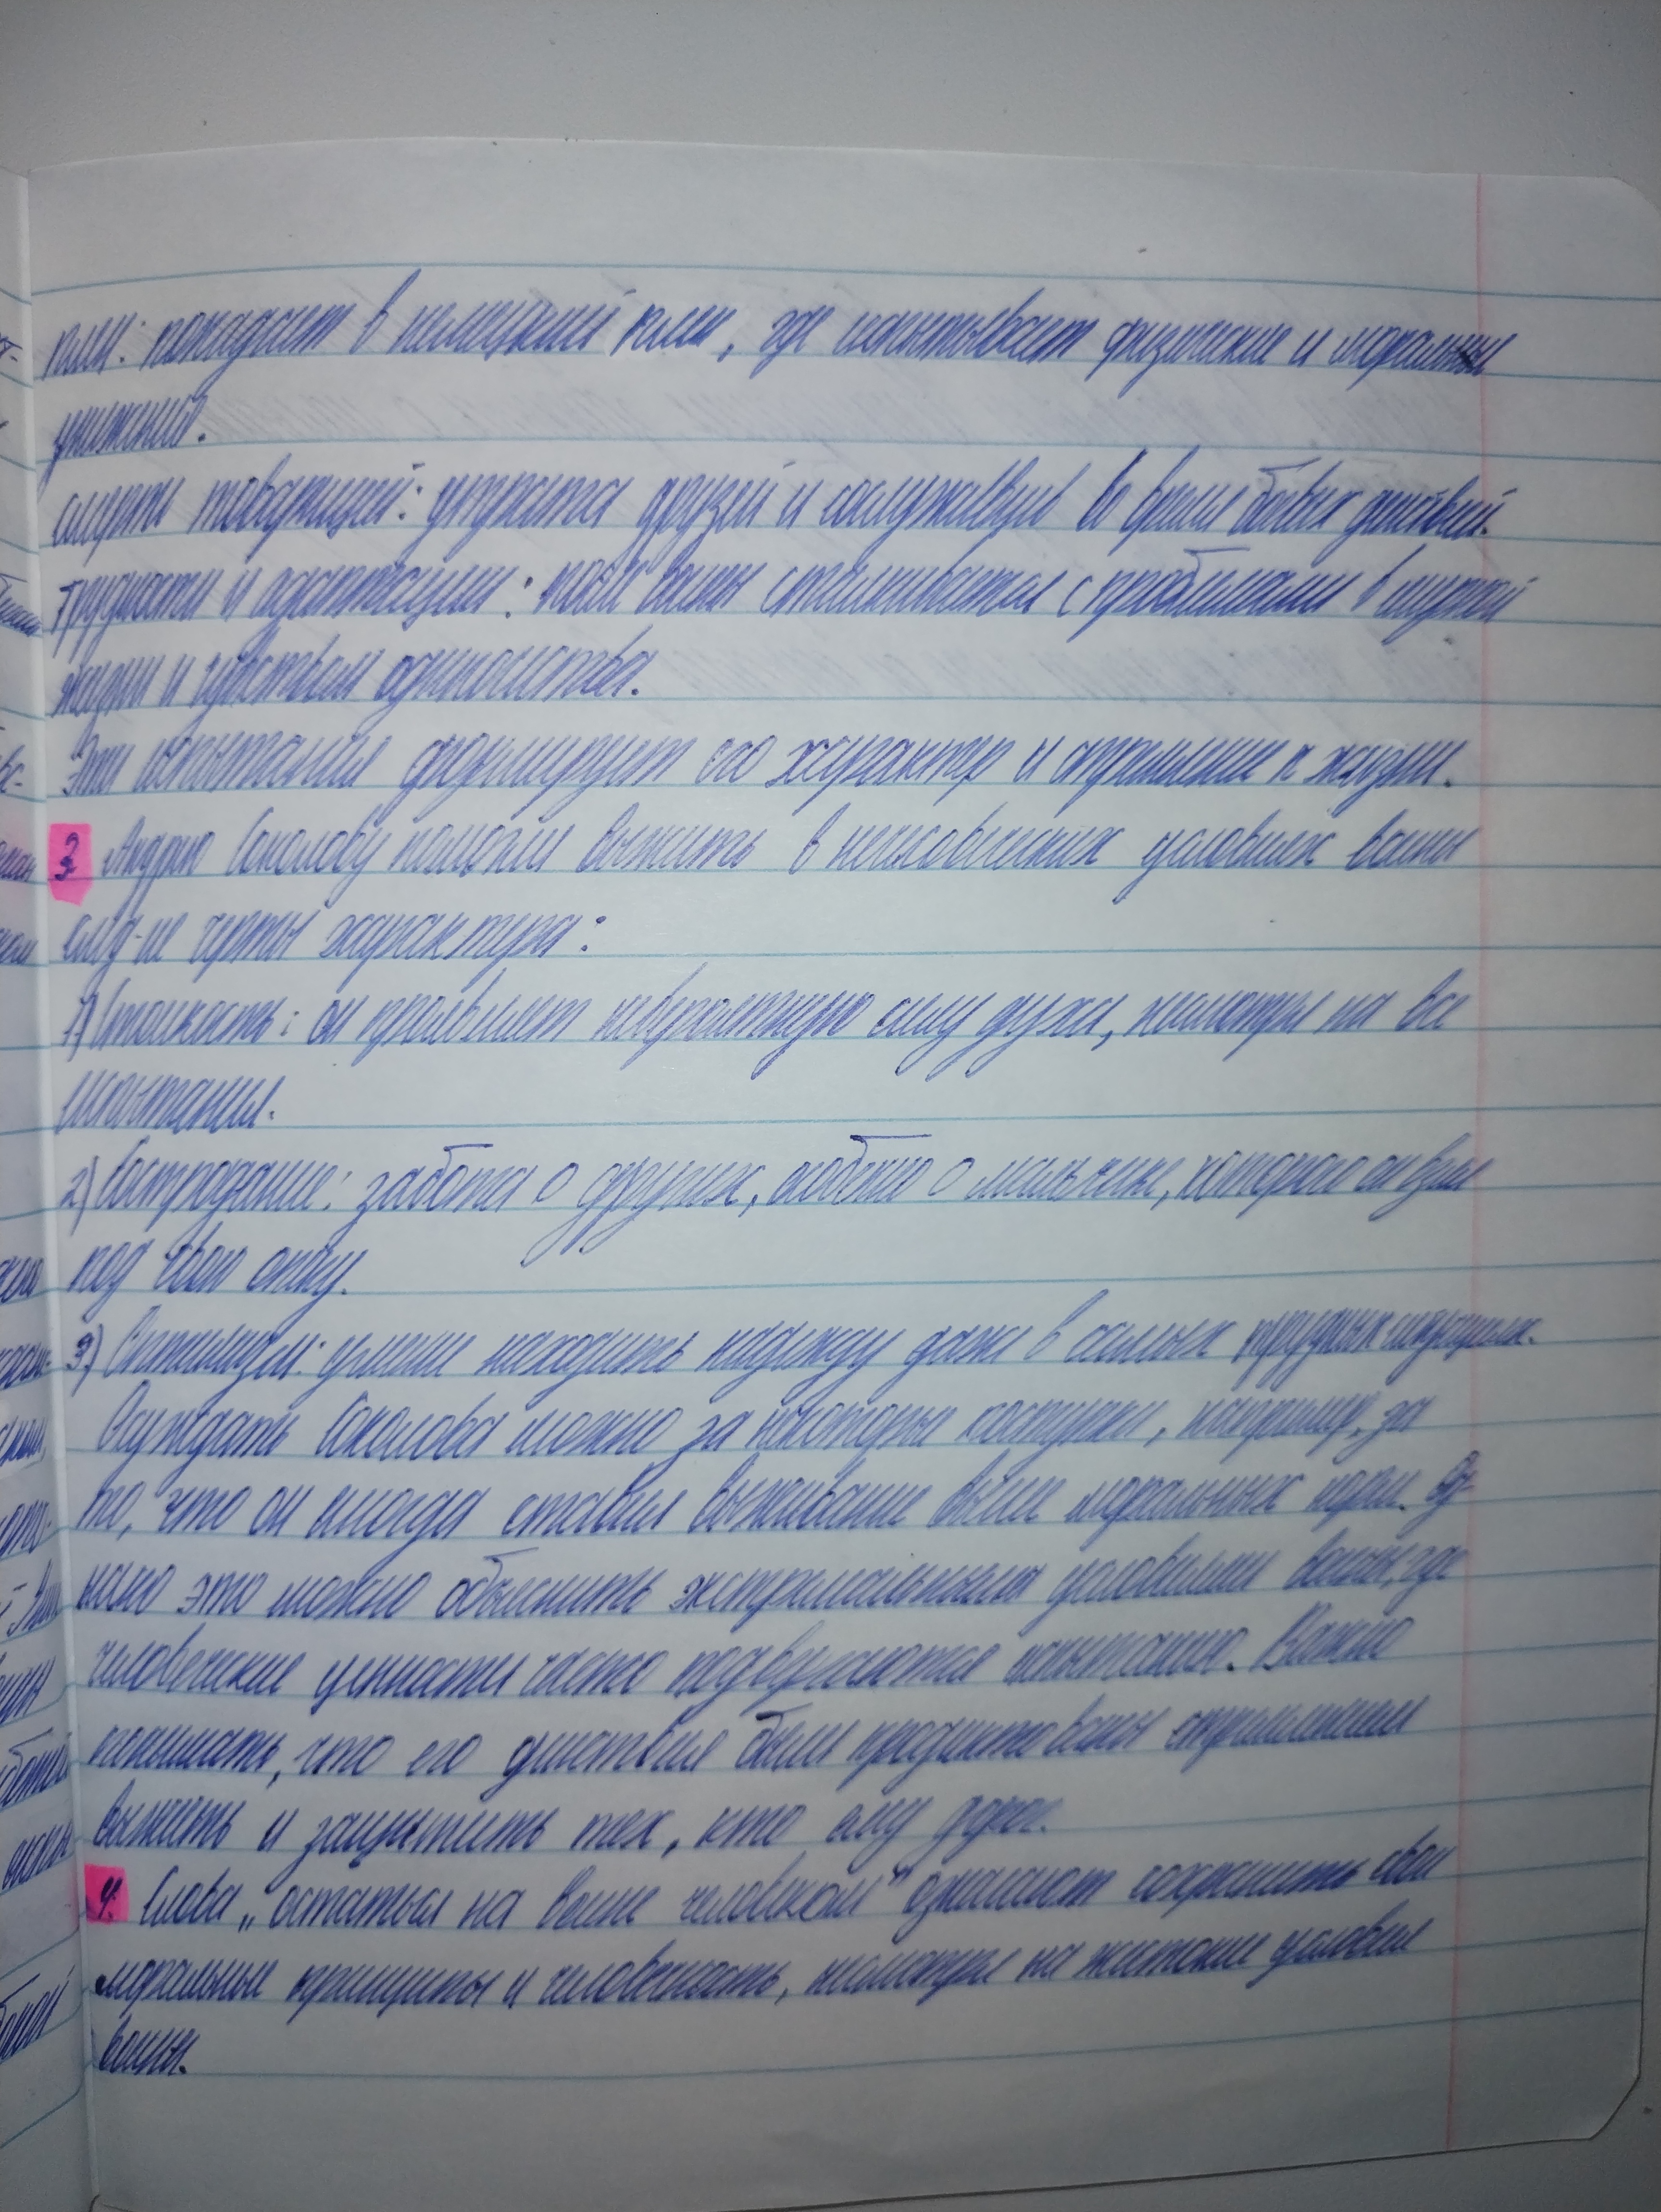 плен: попадает в немецкий плен, где испытывает физические и моральные
унижения.
смерть товарищей: утрата друзей и сослуживцев во время боевых действий.
Трудности и адаптации: после войны сталкивается с проблемами в мирной
жизни и чувством одиночества.
Эти испытания формируют его характер и отношение к жизни.
3. Андрею Соколову помогли выжить в нечеловеческих условиях войны
след-ие черты характера:
1) Стойкость: он проявляет невероятную силу духа, несмотря на все
испытания.
2) Сострадание: забота о других, особенно о мальчике, которого он взял
под свою опеку.
3) Оптимизм: умение находить надежду даже в самых трудных ситуациях.
Осуждать Соколова можно за некоторые поступки, например, за
то, что он иногда ставил выживание выше моральных норм. Од-
нако это можно объяснить экстремальными условиями войны, где
человеческие ценности часто подвергаются испытанию. Важно
понимать, что его действия были продиктованы стремлением
выжить и защитить тех, кто ему дорог.
4. Слова „остаться на войне человеком" означают сохранить свои
моральные принципы и человечность, несмотря на жестокие условия
войны.